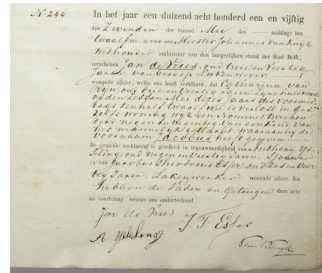 N° 244
In het jaar een duizend acht honderd een en vijftig
den Zevenden der maand Mei des middags ten
twaalf ure, is voor ons Meester Johannes van Kuyk
Wethouder ambtenaar van den burgerlijken stand der Stad Delft,
verschenen Jan de Vries, oud twee en veertig
jaren, van beroep Lakenwever
wonende alhier, welke ons heeft verklaard, dat Catharina van
Ryn oud
op den Mei dezes jaars des voormid
dags ten half twaalf ure verlost in des
zelfs woning wyk een Nommer twee hon
derd negen en tachtig van een kind van
het mannelyk geslacht, waaraan zy de
voornaam Jacobus heeft gegeven
De gemelde verklaring is geschied in tegenwoordigheid van Anthony Ys
seling, oud negen en veertig jaren,
en van Jacobus Theodorus Esser, oud
tig jaren, Lakenwerker wonende alhier. En
hebben de Vader en Getuigen deze acte
na voorlezing nevens ons onderteekend.
Jan de Vries J. T. Esser
A Ysseling
van Kuyk